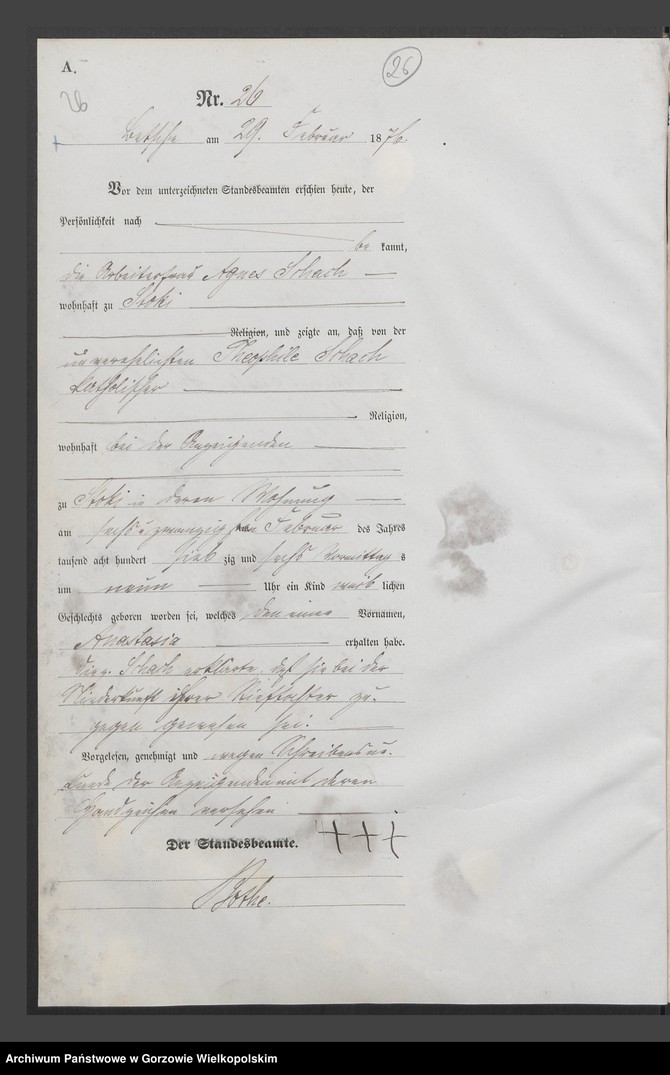 A.
26
26
Nr. 26
Betsche am 29. Februar 1876.
Vor dem unterzeichneten Standesbeamten erschien heute, der
Persönlichkeit nach
be kannt,
die Arbeiterfrau Agnes Schach
wohnhaft zu Stoki
Religion, und zeigte an, daß von der
unverehelichten Theophile Schach
katholischer
Religion,
wohnhaft bei der Anzeigenden
zu Stoki in deren Wohnung
am sechs u zwanzigsten Februar des Jahres
tausend acht hundert sieb zig und sechs Vormittag s
um neun Uhr ein Kind weib lichen
Geschlechts geboren worden sei, welches den einen Vornamen,
Anastasia erhalten habe.
Die p. Schach erklärte, daß sie bei der
Niederkunft ihrer Stieftochter zu-
gegen gewesen sei.
Vorgelesen, genehmigt und wegen Schreibensun-
kunde der Anzeigenden mit deren
Handzeichen versehen
+++
Der Standesbeamte.
Bothe.
Archiwum Państwowe w Gorzowie Wielkopolskim